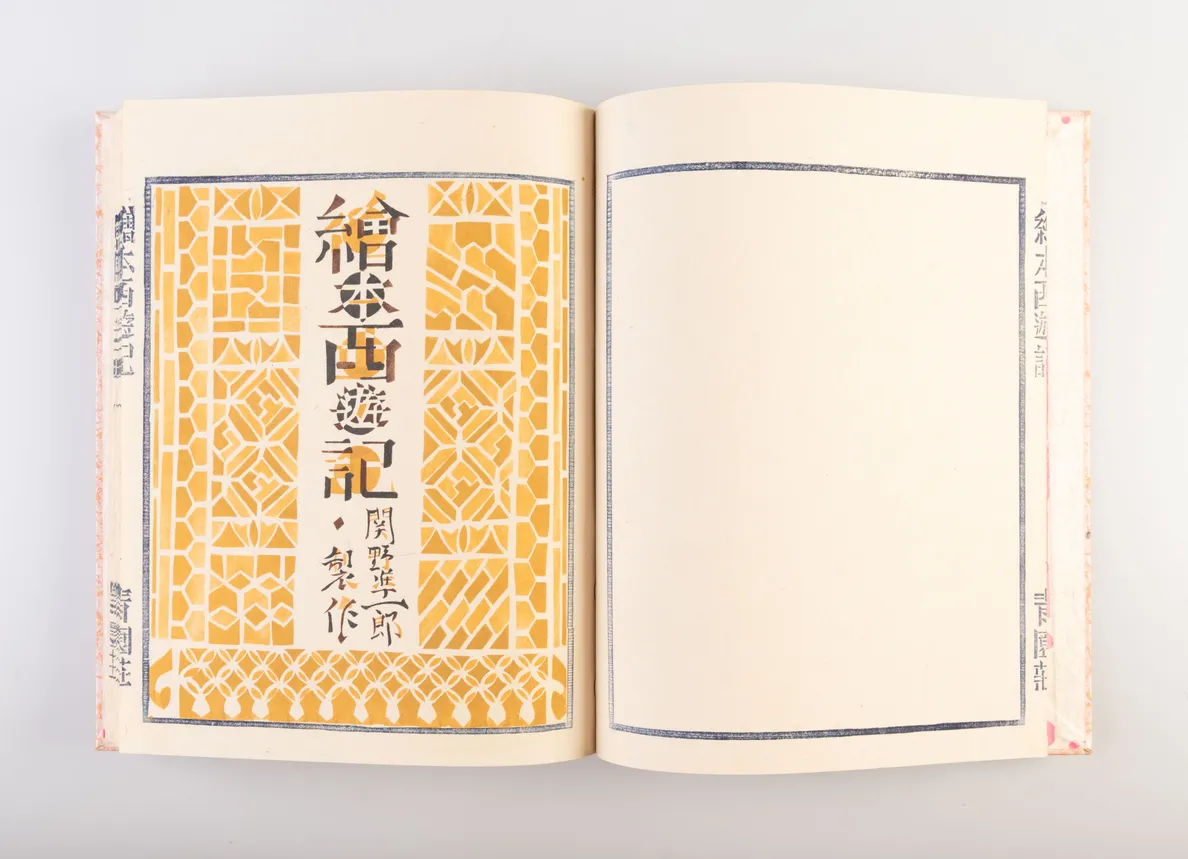 繪本西遊記
・
関野凖一郎
製作
繪本西遊記
青園荘
繪本西遊記
青園荘